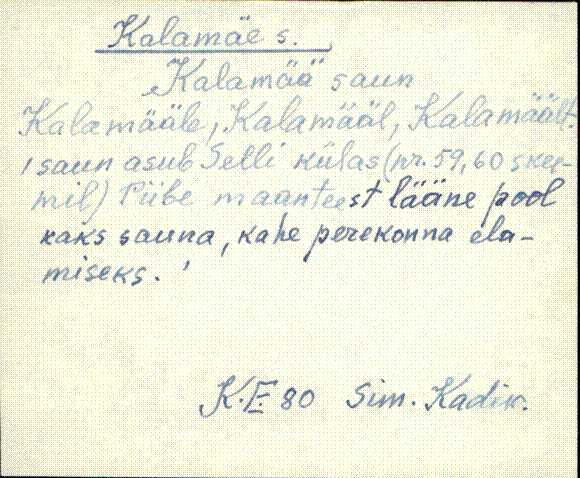 Kalamäe s.
„Kalamää" saun
Kalamääle, Kalamääl, Kalamäält.
'saun asub Selli külas (nr. 59, 60 skee-
mil) Piibe maanteest lääne pool
kaks sauna, kahe perekonna ela-
miseks.'
K.E 80 Sim. Kadik.